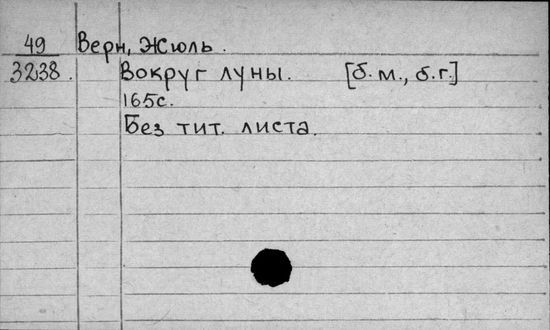 49 Верн, Жюль.
3238. Вокруг луны. [б.м., б.г.]
165с.
Без тит. листа.